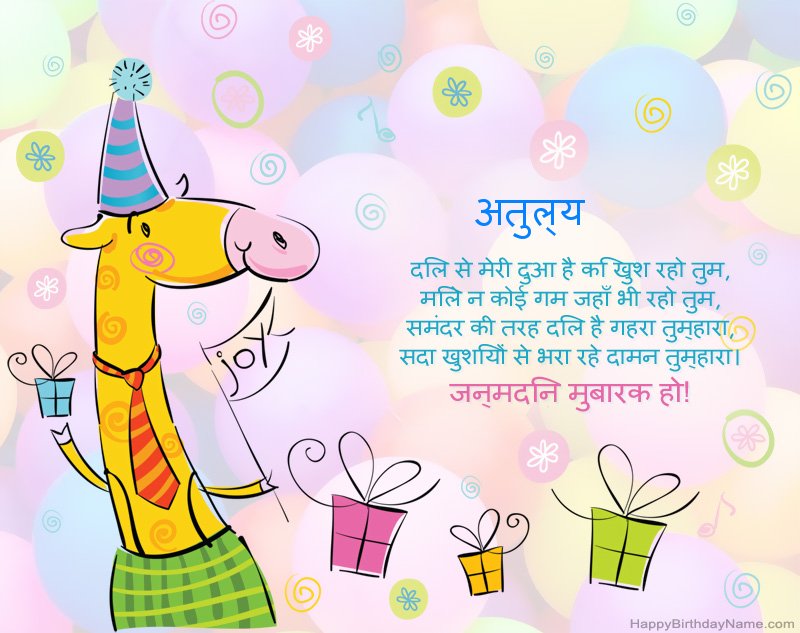 अतुल्य
दिल से मेरी दुआ है कि खुश रहो तुम,
मिले न कोई गम जहाँ भी रहो तुम,
समंदर की तरह दिल है गहरा तुम्हारा,
सदा खुशियों से भरा रहे दामन तुम्हारा।
जन्मदिन मुबारक हो!
joy
HappyBirthdayName.com